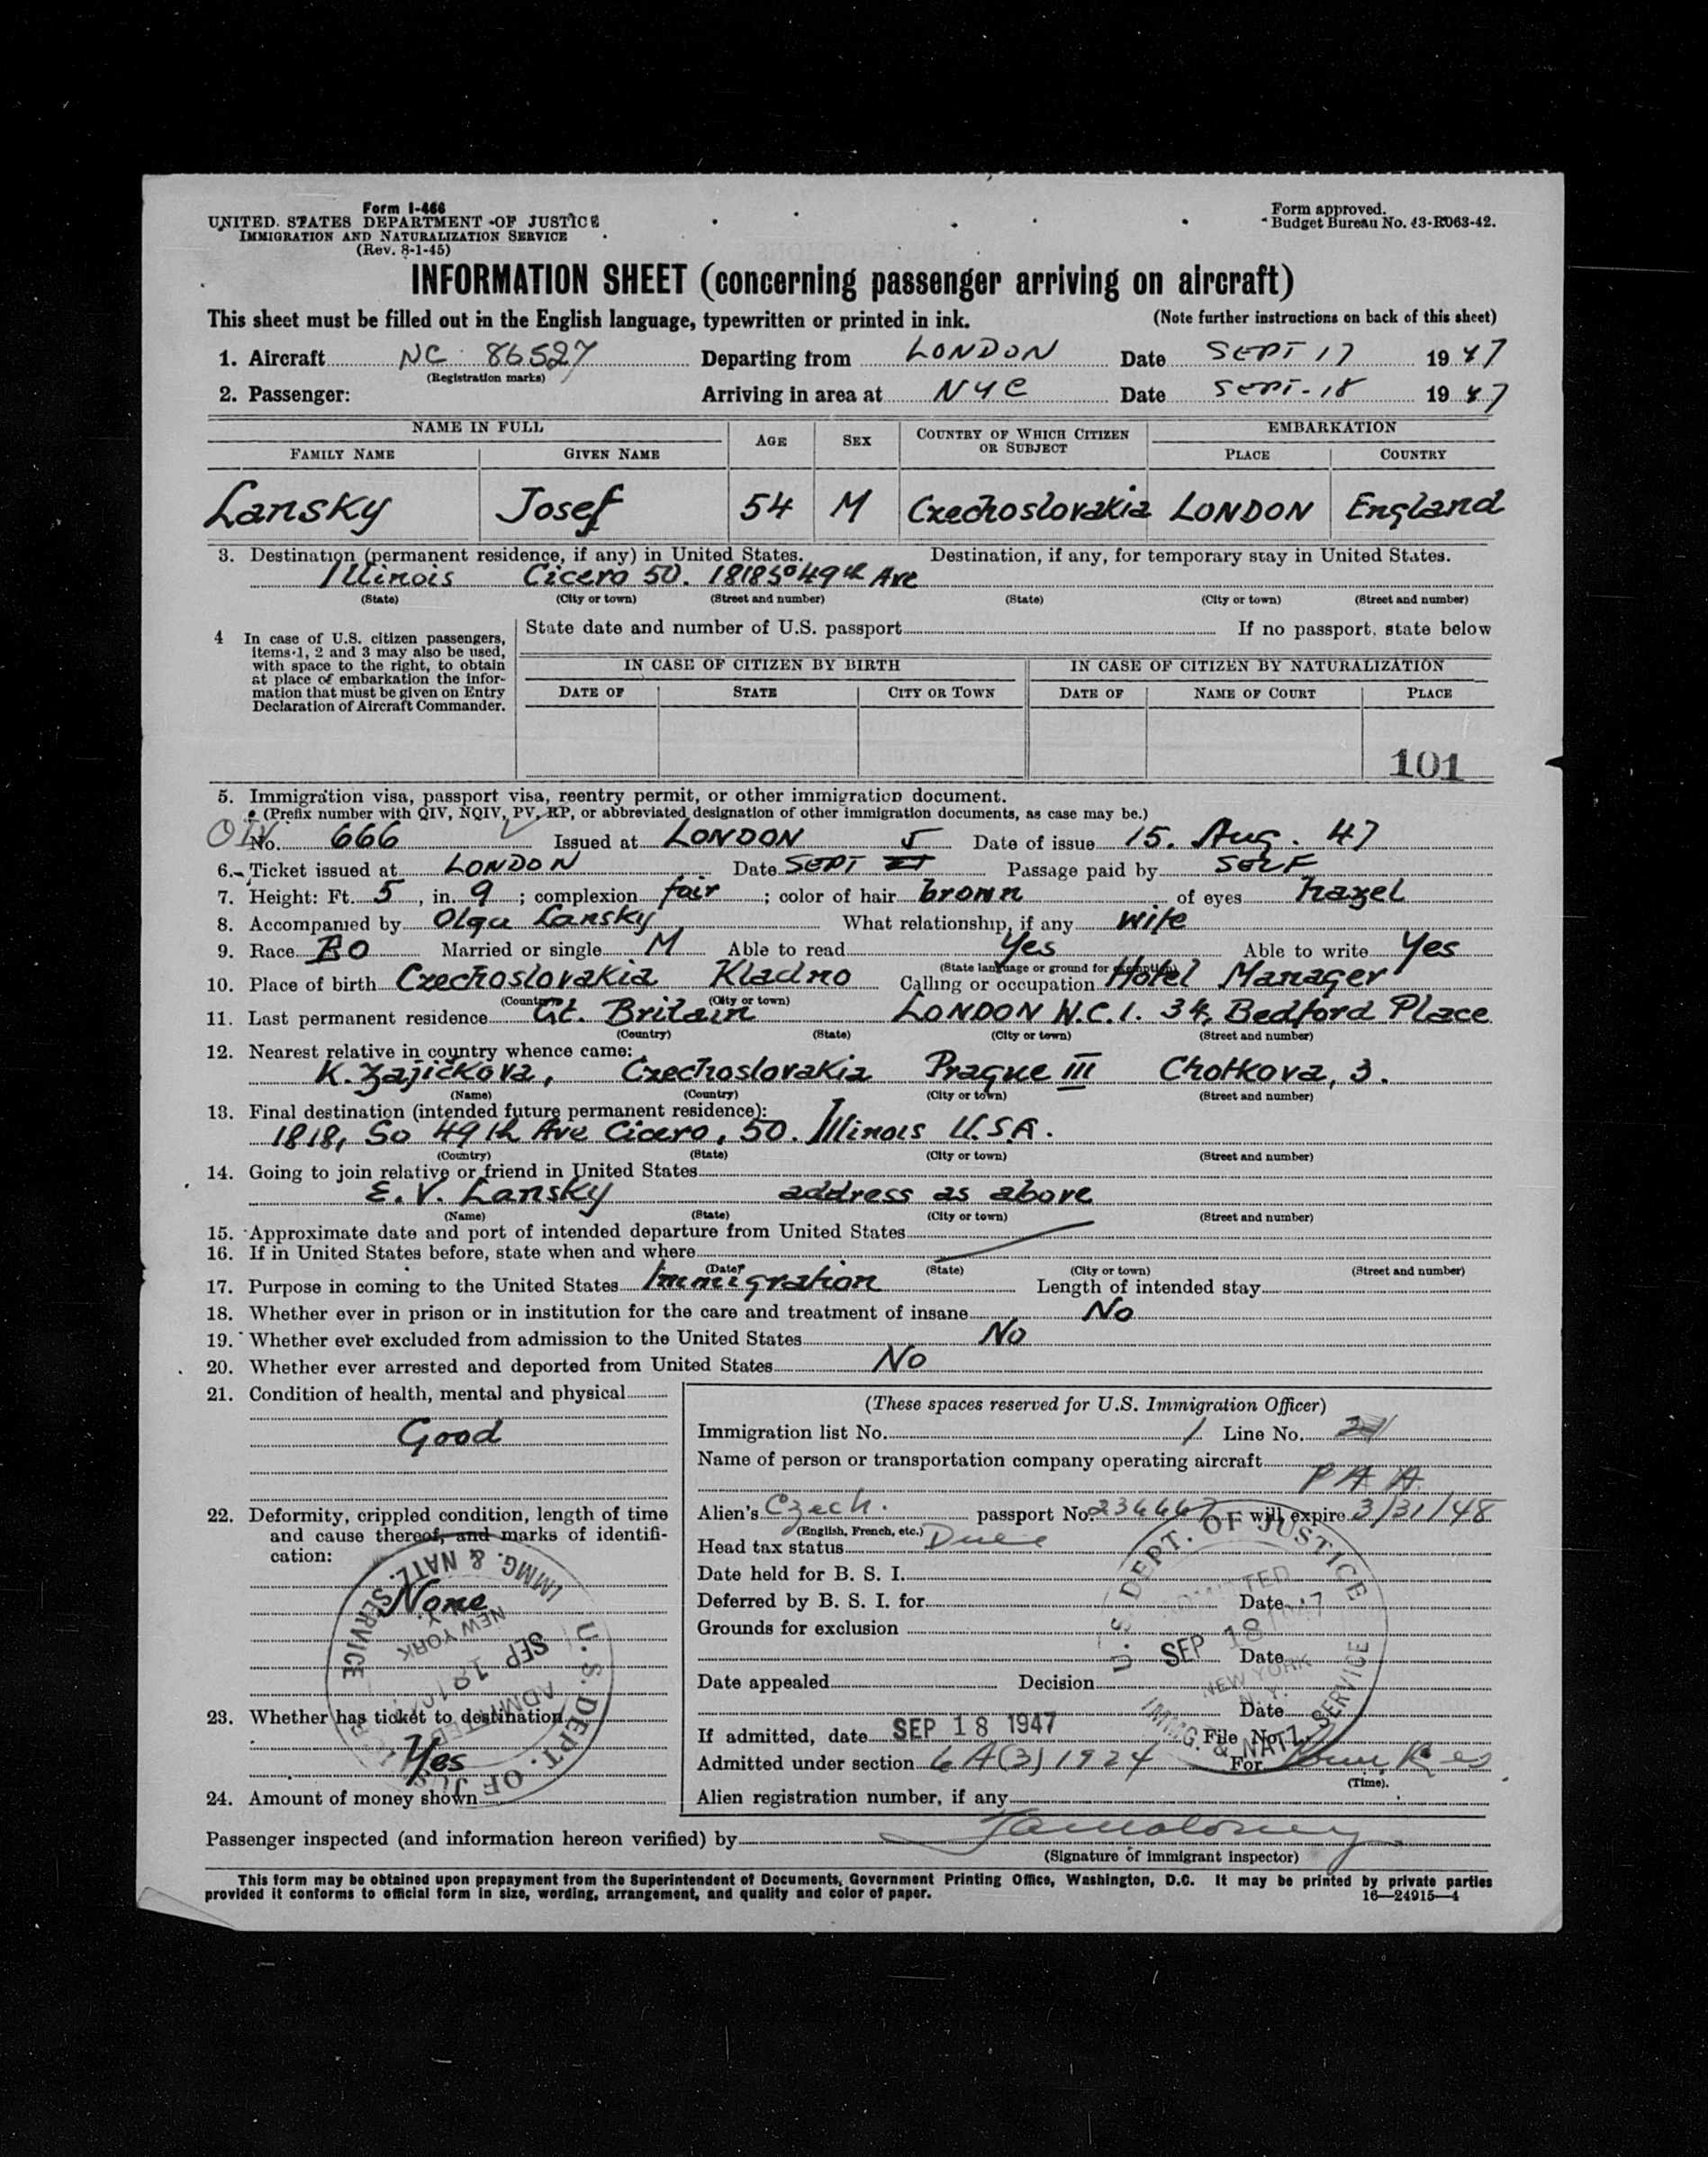 Form I-466
UNITED STATES DEPARTMENT OF JUSTICE
IMMIGRATION AND NATURALIZATION SERVICE
(Rev. 8-1-45)
Form approved.
Budget Bureau No. 43-R063-42.
INFORMATION SHEET (concerning passenger arriving on aircraft)
This sheet must be filled out in the English language, typewritten or printed in ink. (Note further instructions on back of this sheet)
1. Aircraft NC 86527 Departing from LONDON Date SEPT 17 1947
(Registration marks)
2. Passenger: Arriving in area at NYC Date SEPT-18 1947
NAME IN FULL AGE SEX COUNTRY OF WHICH CITIZEN OR SUBJECT EMBARKATION
FAMILY NAME GIVEN NAME PLACE COUNTRY
Lansky Josef 54 M Czechoslovakia LONDON England
3. Destination (permanent residence, if any) in United States. Destination, if any, for temporary stay in United States.
Illinois Cicero 50. 1818 So 49th Ave
(State) (City or town) (Street and number) (State) (City or town) (Street and number)
4 In case of U.S. citizen passengers, items 1, 2 and 3 may also be used, with space to the right, to obtain at place of embarkation the information that must be given on Entry Declaration of Aircraft Commander.
State date and number of U.S. passport If no passport, state below
IN CASE OF CITIZEN BY BIRTH IN CASE OF CITIZEN BY NATURALIZATION
DATE OF STATE CITY OR TOWN DATE OF NAME OF COURT PLACE
101
5. Immigration visa, passport visa, reentry permit, or other immigration document.
(Prefix number with QIV, NQIV, PV, RP, or abbreviated designation of other immigration documents, as case may be.)
QIV No. 666 Issued at LONDON Date of issue 15. Aug. 47
6. Ticket issued at LONDON Date SEPT 5 Passage paid by SELF
7. Height: Ft. 5, in. 9; complexion fair; color of hair brown of eyes hazel
8. Accompanied by Olga Lansky What relationship, if any wife
9. Race BO Married or single M Able to read Yes Able to write Yes
(State language or ground for exemption)
10. Place of birth Czechoslovakia Kladno Calling or occupation Hotel Manager
(Country) (City or town)
11. Last permanent residence Gt. Britain LONDON W.C.1. 34, Bedford Place
(Country) (State) (City or town) (Street and number)
12. Nearest relative in country whence came:
K. Zajíčkova, Czechoslovakia Prague III Chotkova, 3.
(Name) (Country) (City or town) (Street and number)
13. Final destination (intended future permanent residence):
1818, So 49th Ave Cicero, 50. Illinois U.S.A.
(Country) (State) (City or town) (Street and number)
14. Going to join relative or friend in United States
E. V. Lansky address as above
(Name) (State) (City or town) (Street and number)
15. Approximate date and port of intended departure from United States
16. If in United States before, state when and where
(Date) (State) (City or town) (Street and number)
17. Purpose in coming to the United States Immigration Length of intended stay
18. Whether ever in prison or in institution for the care and treatment of insane No
19. Whether ever excluded from admission to the United States No
20. Whether ever arrested and deported from United States No
21. Condition of health, mental and physical
Good
22. Deformity, crippled condition, length of time
and cause thereof, and marks of identifi-
cation:
None
U. S. DEPT. OF JUSTICE
ADMITTED
SEP 18
NEW YORK
IMMG. & NATZ. SERVICE
23. Whether has ticket to destination
Yes
24. Amount of money shown
(These spaces reserved for U.S. Immigration Officer)
Immigration list No. 1 Line No.
Name of person or transportation company operating aircraft
PAA
Alien's Czech. passport No. will expire 3/31/48
(English, French, etc.)
Head tax status
Date held for B. S. I.
Deferred by B. S. I. for Date
Grounds for exclusion
Date
Date appealed Decision
Date
U. S. DEPT. OF JUSTICE
ADMITTED
SEP 18
NEW YORK
N. Y.
IMMG. & NATZ. SERVICE
If admitted, date SEP 18 1947 File No.
Admitted under section 6A(3) 1924 For
(Time).
Alien registration number, if any
Passenger inspected (and information hereon verified) by
(Signature of immigrant inspector)
This form may be obtained upon prepayment from the Superintendent of Documents, Government Printing Office, Washington, D.C. It may be printed by private parties
provided it conforms to official form in size, wording, arrangement, and quality and color of paper. 16—24915—4